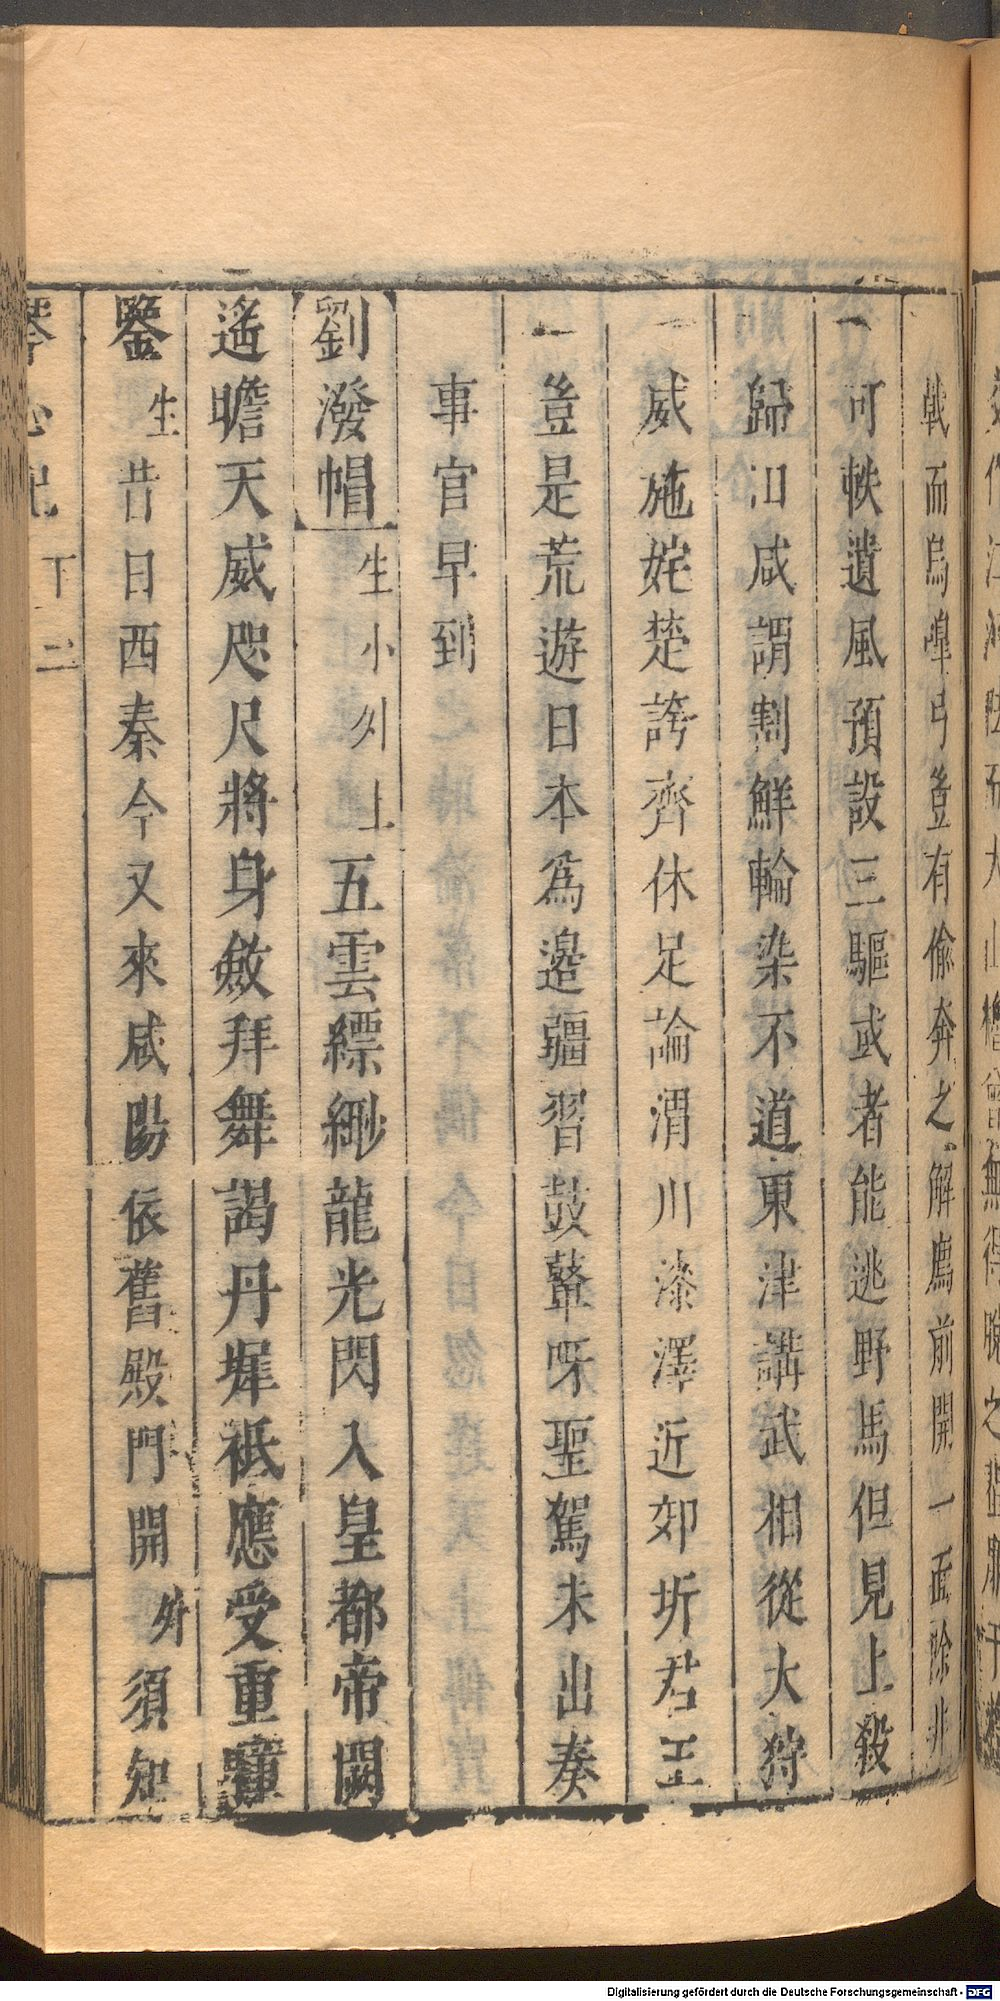 戟而烏嘷弓豈有偷奔之解廌前開一面除非
一可軼遺風預設三驅或者能逃野馬但見上殺
歸汨咸謂割鮮輪染不道東津講武相從大狩
一威施姹楚誇齊休足論渭川漆澤近郊圻君王
一豈是荒遊日本為邊疆習鼓鼙呀聖駕未出奏
事官早到
劉潑帽生小外上五雲縹緲龍光閃入皇都帝闕
遙瞻天威咫尺將身斂拜舞謁丹墀祗應受重瞳
鑒生昔日西秦今又來咸陽依舊殿門開外須知
琴心記 下 二
Digitalisierung gefördert durch die Deutsche Forschungsgemeinschaft - DFG